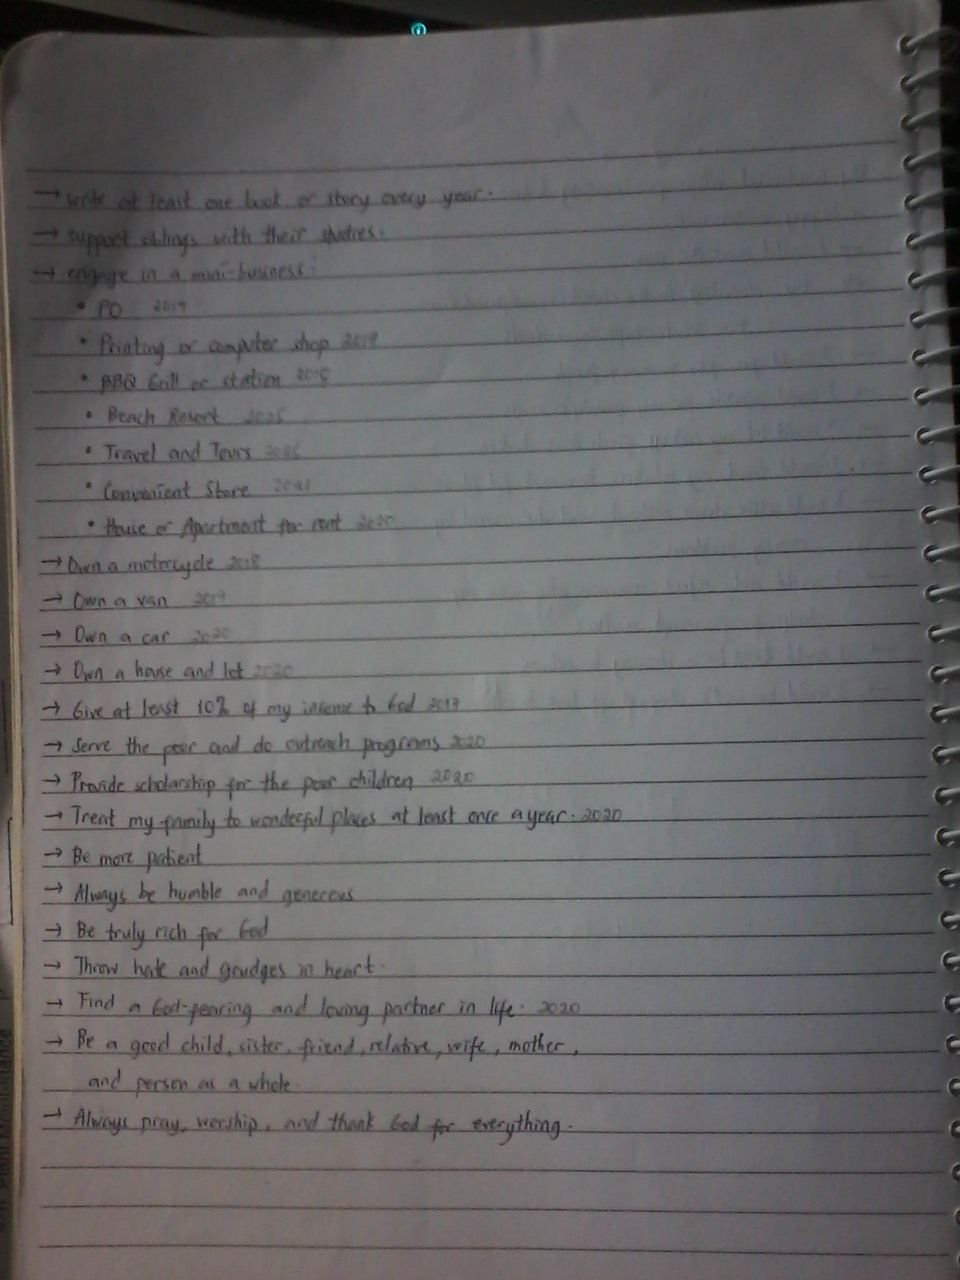 → write at least one book or story every year.
→ support siblings with their studies.
→ engage in a mini-business:
• PO 2019
• Printing or computer shop 2019
• BBQ Grill or station 2018
• Beach Resort 2025
• Travel and Tours
• Convenient Store 2021
• House or Apartment for rent 2020
→ Own a motorcycle 2018
→ Own a van 2019
→ Own a car 2020
→ Own a house and lot 2020
→ Give at least 10% of my income to God 2017
→ Serve the poor and do outreach programs 2020
→ Provide scholarship for the poor children 2020
→ Treat my family to wonderful places at least once a year. 2020
→ Be more patient
→ Always be humble and generous
→ Be truly rich for God
→ Throw hate and grudges in heart.
→ Find a God-fearing and loving partner in life. 2020
→ Be a good child, sister, friend, relative, wife, mother,
and person as a whole.
→ Always pray, worship, and thank God for everything.